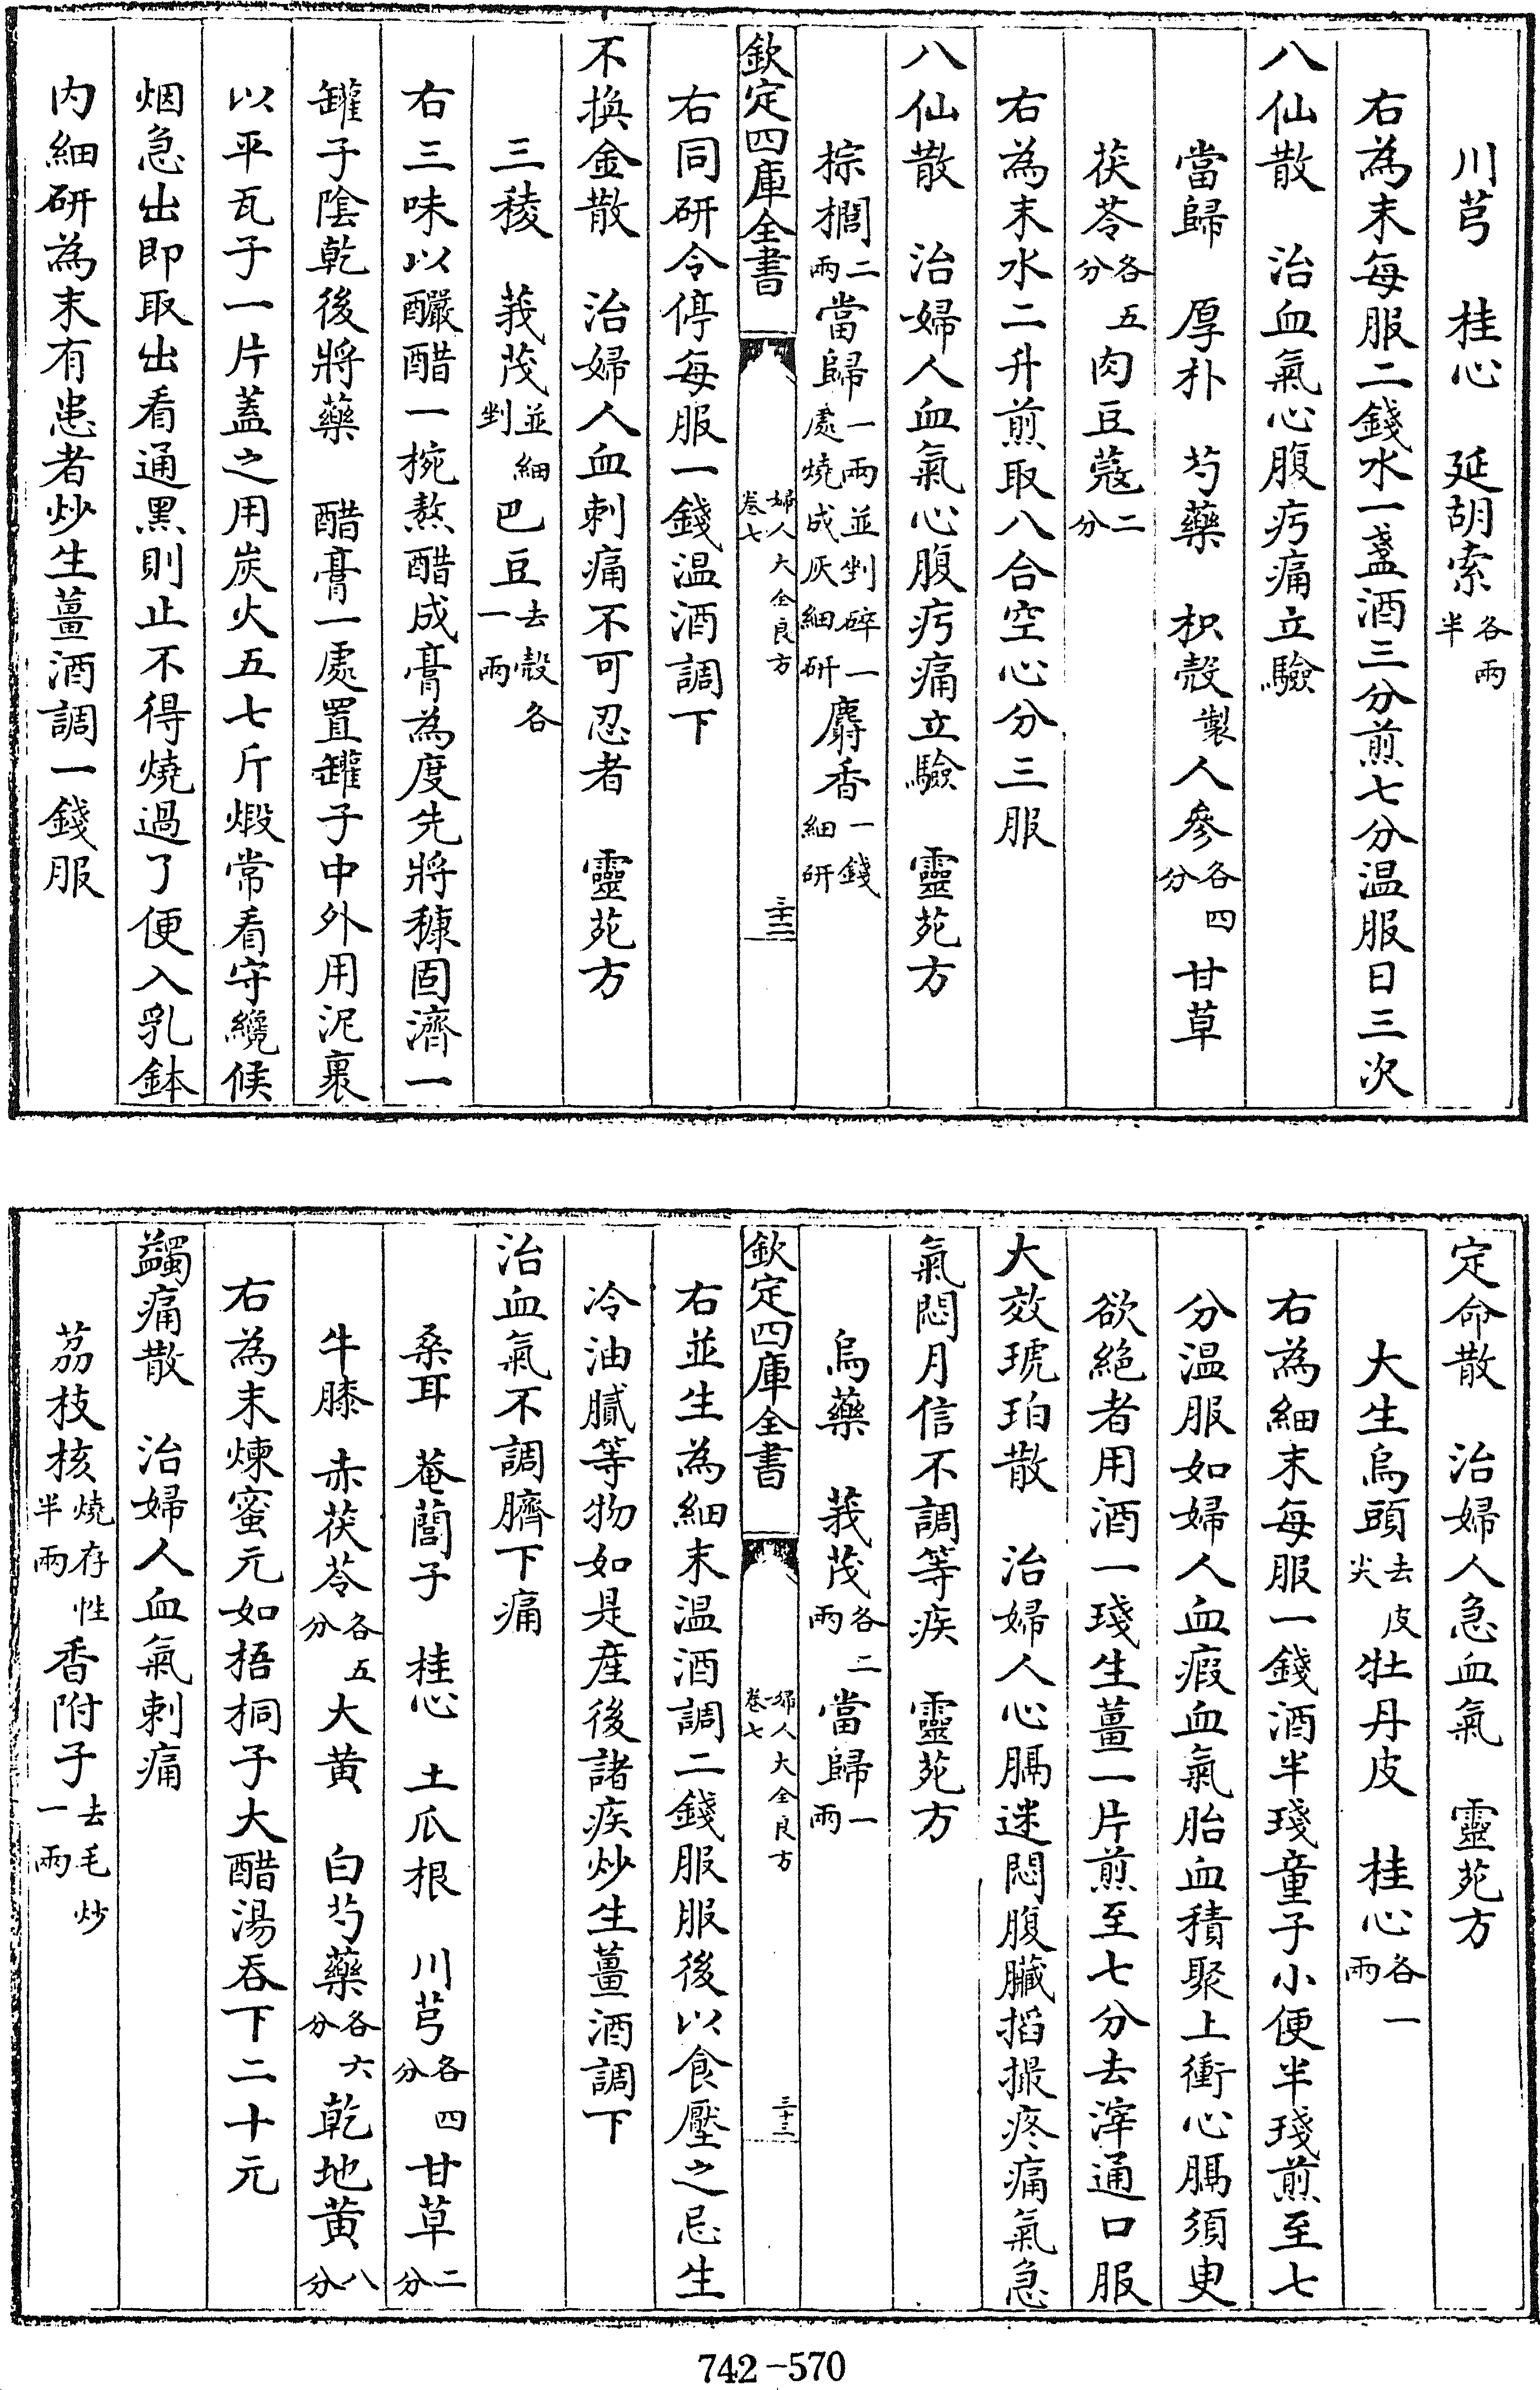 川芎　桂心　延胡索各兩半
右為末每服二錢水一盞酒三分煎七分温服日三次
八仙散　治血氣心腹疞痛立驗
當歸　厚朴　芍藥　枳殻製人參各四分甘草
茯苓各五分肉豆蔻二分
右為末水二升煎取八合空心分三服
八仙散　治婦人血氣心腹疞痛立驗　靈苑方
棕櫚二兩當歸一兩並剉碎一處燒成灰細研麝香一錢細研
欽定四庫全書　婦人大全良方卷七　三十二
右同研令停每服一錢温酒調下
不換金散　治婦人血刺痛不可忍者　靈苑方
三稜　莪茂並細剉巴豆去殻各一兩
右三味以釅醋一椀熬醋成膏為度先將穅固濟一
罐子陰乾後將藥　醋膏一處置罐子中外用泥裹
以平瓦子一片蓋之用炭火五七斤煅常看守纔候
烟急出即取出看通黑則止不得燒過了便入乳鉢
内細研為末有患者炒生薑酒調一錢服
定命散　治婦人急血氣　靈苑方
大生烏頭去皮尖牡丹皮　桂心各一兩
右為細末每服一錢酒半琖童子小便半琖煎至七
分温服如婦人血瘕血氣胎血積聚上衝心膈須臾
欲絶者用酒一琖生薑一片煎至七分去滓通口服
大效琥珀散　治婦人心膈迷悶腹臟搯撮疼痛氣急
氣悶月信不調等疾　靈苑方
烏藥　莪茂各二兩當歸一兩
欽定四庫全書　婦人大全良方卷七　三十三
右並生為細末温酒調二錢服服後以食壓之忌生
冷油膩等物如是産後諸疾炒生薑酒調下
治血氣不調臍下痛
桑耳　菴䕡子　桂心　土瓜根　川芎各四分甘草二分
牛膝　赤茯苓各五分大黄　白芍藥各六分乾地黄八分
右為末煉蜜元如梧桐子大醋湯吞下二十元
蠲痛散　治婦人血氣刺痛
荔枝核燒存性半兩香附子去毛炒一兩
742-570